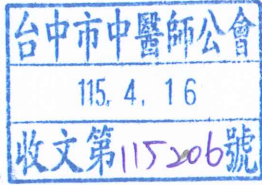 台中市中醫師公會
115. 4. 16
收文第115206號